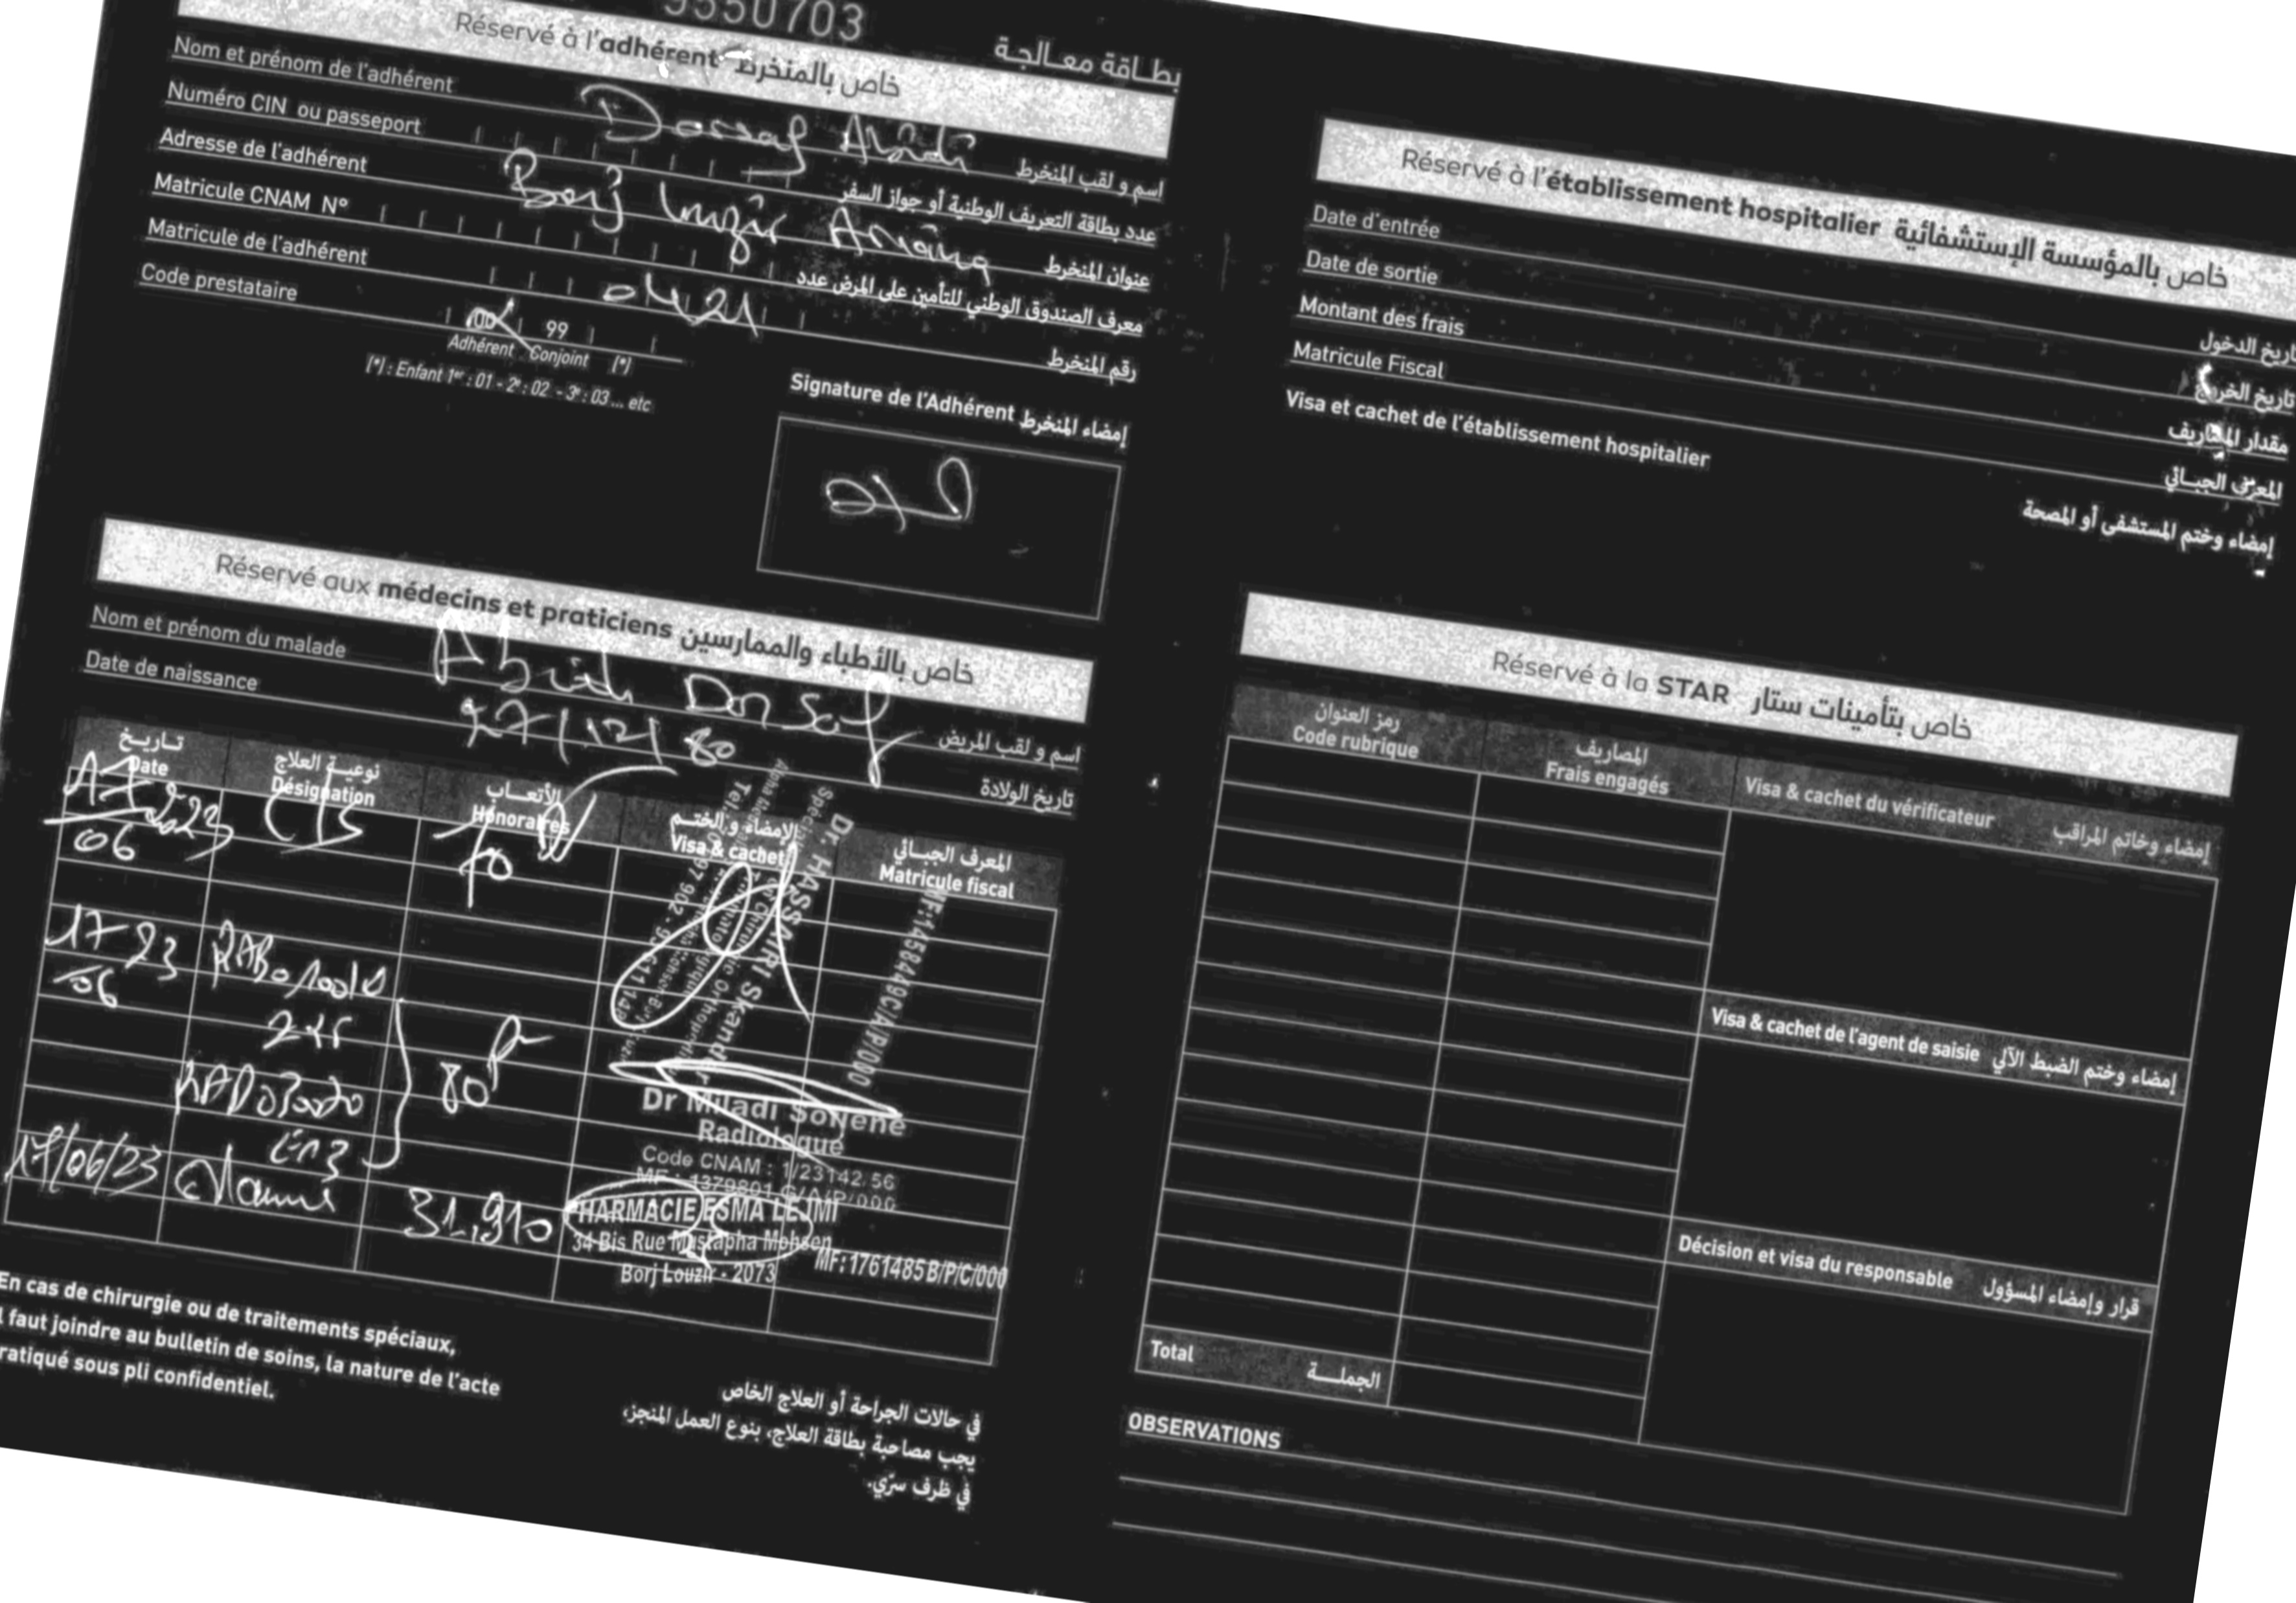 بطـاقة معـالجـة
Réservé à l'adhérent خاص بالمنخرط
Nom et prénom de l'adhérent Dorsaf Abidi اسم و لقب المنخرط
Numéro CIN ou passeport عدد بطاقة التعريف الوطنية أو جواز السفر
Adresse de l'adhérent Borj Louzir Ariana عنوان المنخرط
Matricule CNAM N° معرف الصندوق الوطني للتأمين على المرض عدد
Matricule de l'adhérent 0421 رقم المنخرط
Code prestataire 00 99
Adhérent Conjoint (*)
(*) : Enfant 1er : 01 - 2e : 02 - 3e : 03 ... etc
Signature de l'Adhérent إمضاء المنخرط
Réservé aux médecins et praticiens خاص بالأطباء والممارسين
Nom et prénom du malade Abidi Dorsaf اسم و لقب المريض
Date de naissance 27/12/80 تاريخ الولادة
تـاريـخ نوعيـة العلاج الأتعـاب الإمضاء و الختـم المعرف الجبـائي
Date Désignation Honoraires Visa & cachet Matricule fiscal
17 2023 CS 70
06
Dr. HASSAIRI Skander
MF:1458449C/A/P/000
17 23
06
80
Dr Miladi Sofiene
Radiologue
Code CNAM : 1/23142.56
17/06/23 31,910
PHARMACIE ESMA LEJMI
34 Bis Rue Mustapha Mohsen
Borj Louzir - 2073
MF:1761485B/P/C/000
En cas de chirurgie ou de traitements spéciaux,
l faut joindre au bulletin de soins, la nature de l'acte
ratiqué sous pli confidentiel.
في حالات الجراحة أو العلاج الخاص
يجب مصاحبة بطاقة العلاج، بنوع العمل المنجز،
في ظرف سرّي.
Réservé à l'établissement hospitalier خاص بالمؤسسة الإستشفائية
Date d'entrée تاريخ الدخول
Date de sortie تاريخ الخروج
Montant des frais مقدار المصاريف
Matricule Fiscal المعرف الجبـائي
Visa et cachet de l'établissement hospitalier إمضاء وختم المستشفى أو المصحة
Réservé à la STAR خاص بتأمينات ستار
رمز العنوان المصاريف
Code rubrique Frais engagés Visa & cachet du vérificateur إمضاء وخاتم المراقب
Visa & cachet de l'agent de saisie إمضاء وختم الضبط الآلي
Décision et visa du responsable قرار وإمضاء المسؤول
Total الجملـــة
OBSERVATIONS